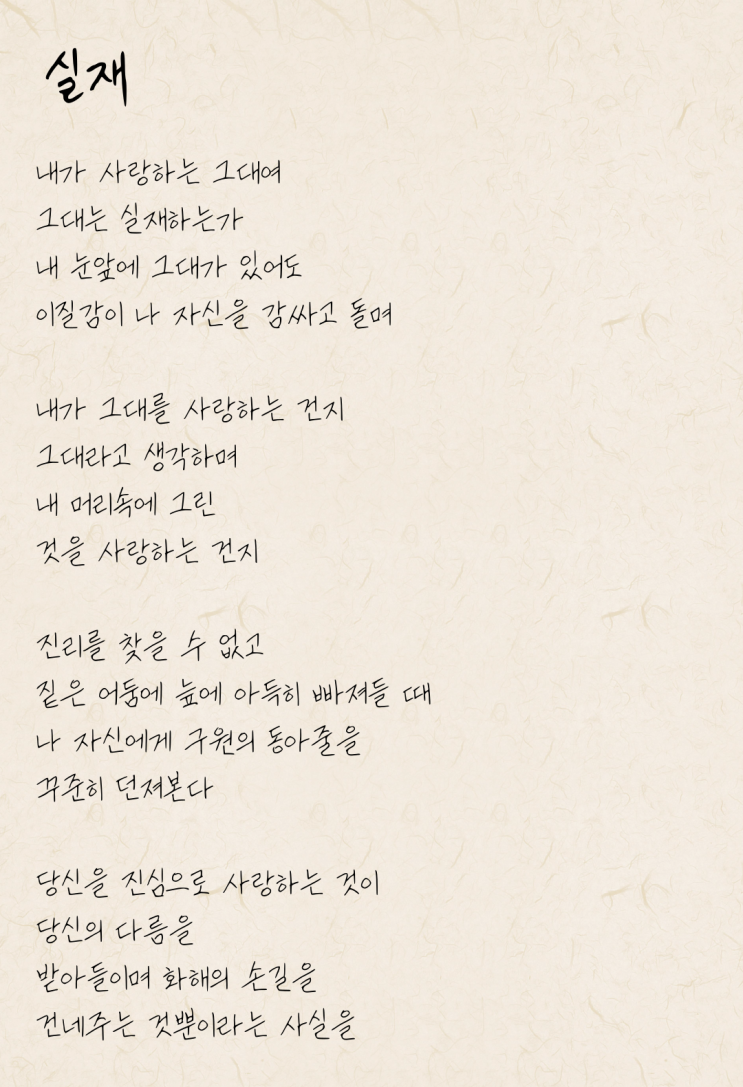 실재
내가 사랑하는 그대여
그대는 실재하는가
내 눈앞에 그대가 있어도
이질감이 나 자신을 감싸고 돌며
내가 그대를 사랑하는 건지
그대라고 생각하며
내 머리속에 그린
것을 사랑하는 건지
진리를 찾을 수 없고
짙은 어둠에 늪에 아득히 빠져들 때
나 자신에게 구원의 동아줄을
꾸준히 던져본다
당신을 진심으로 사랑하는 것이
당신의 다름을
받아들이며 화해의 손길을
건네주는 것뿐이라는 사실을